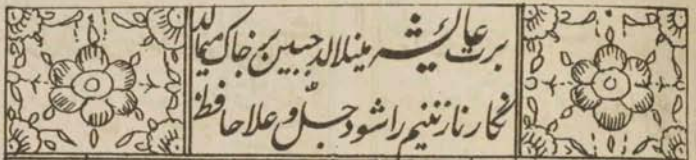 برت عایشه مینلالد جبین بر خاک میمالد
نگار نازنینم را شود جل و علا حافظ